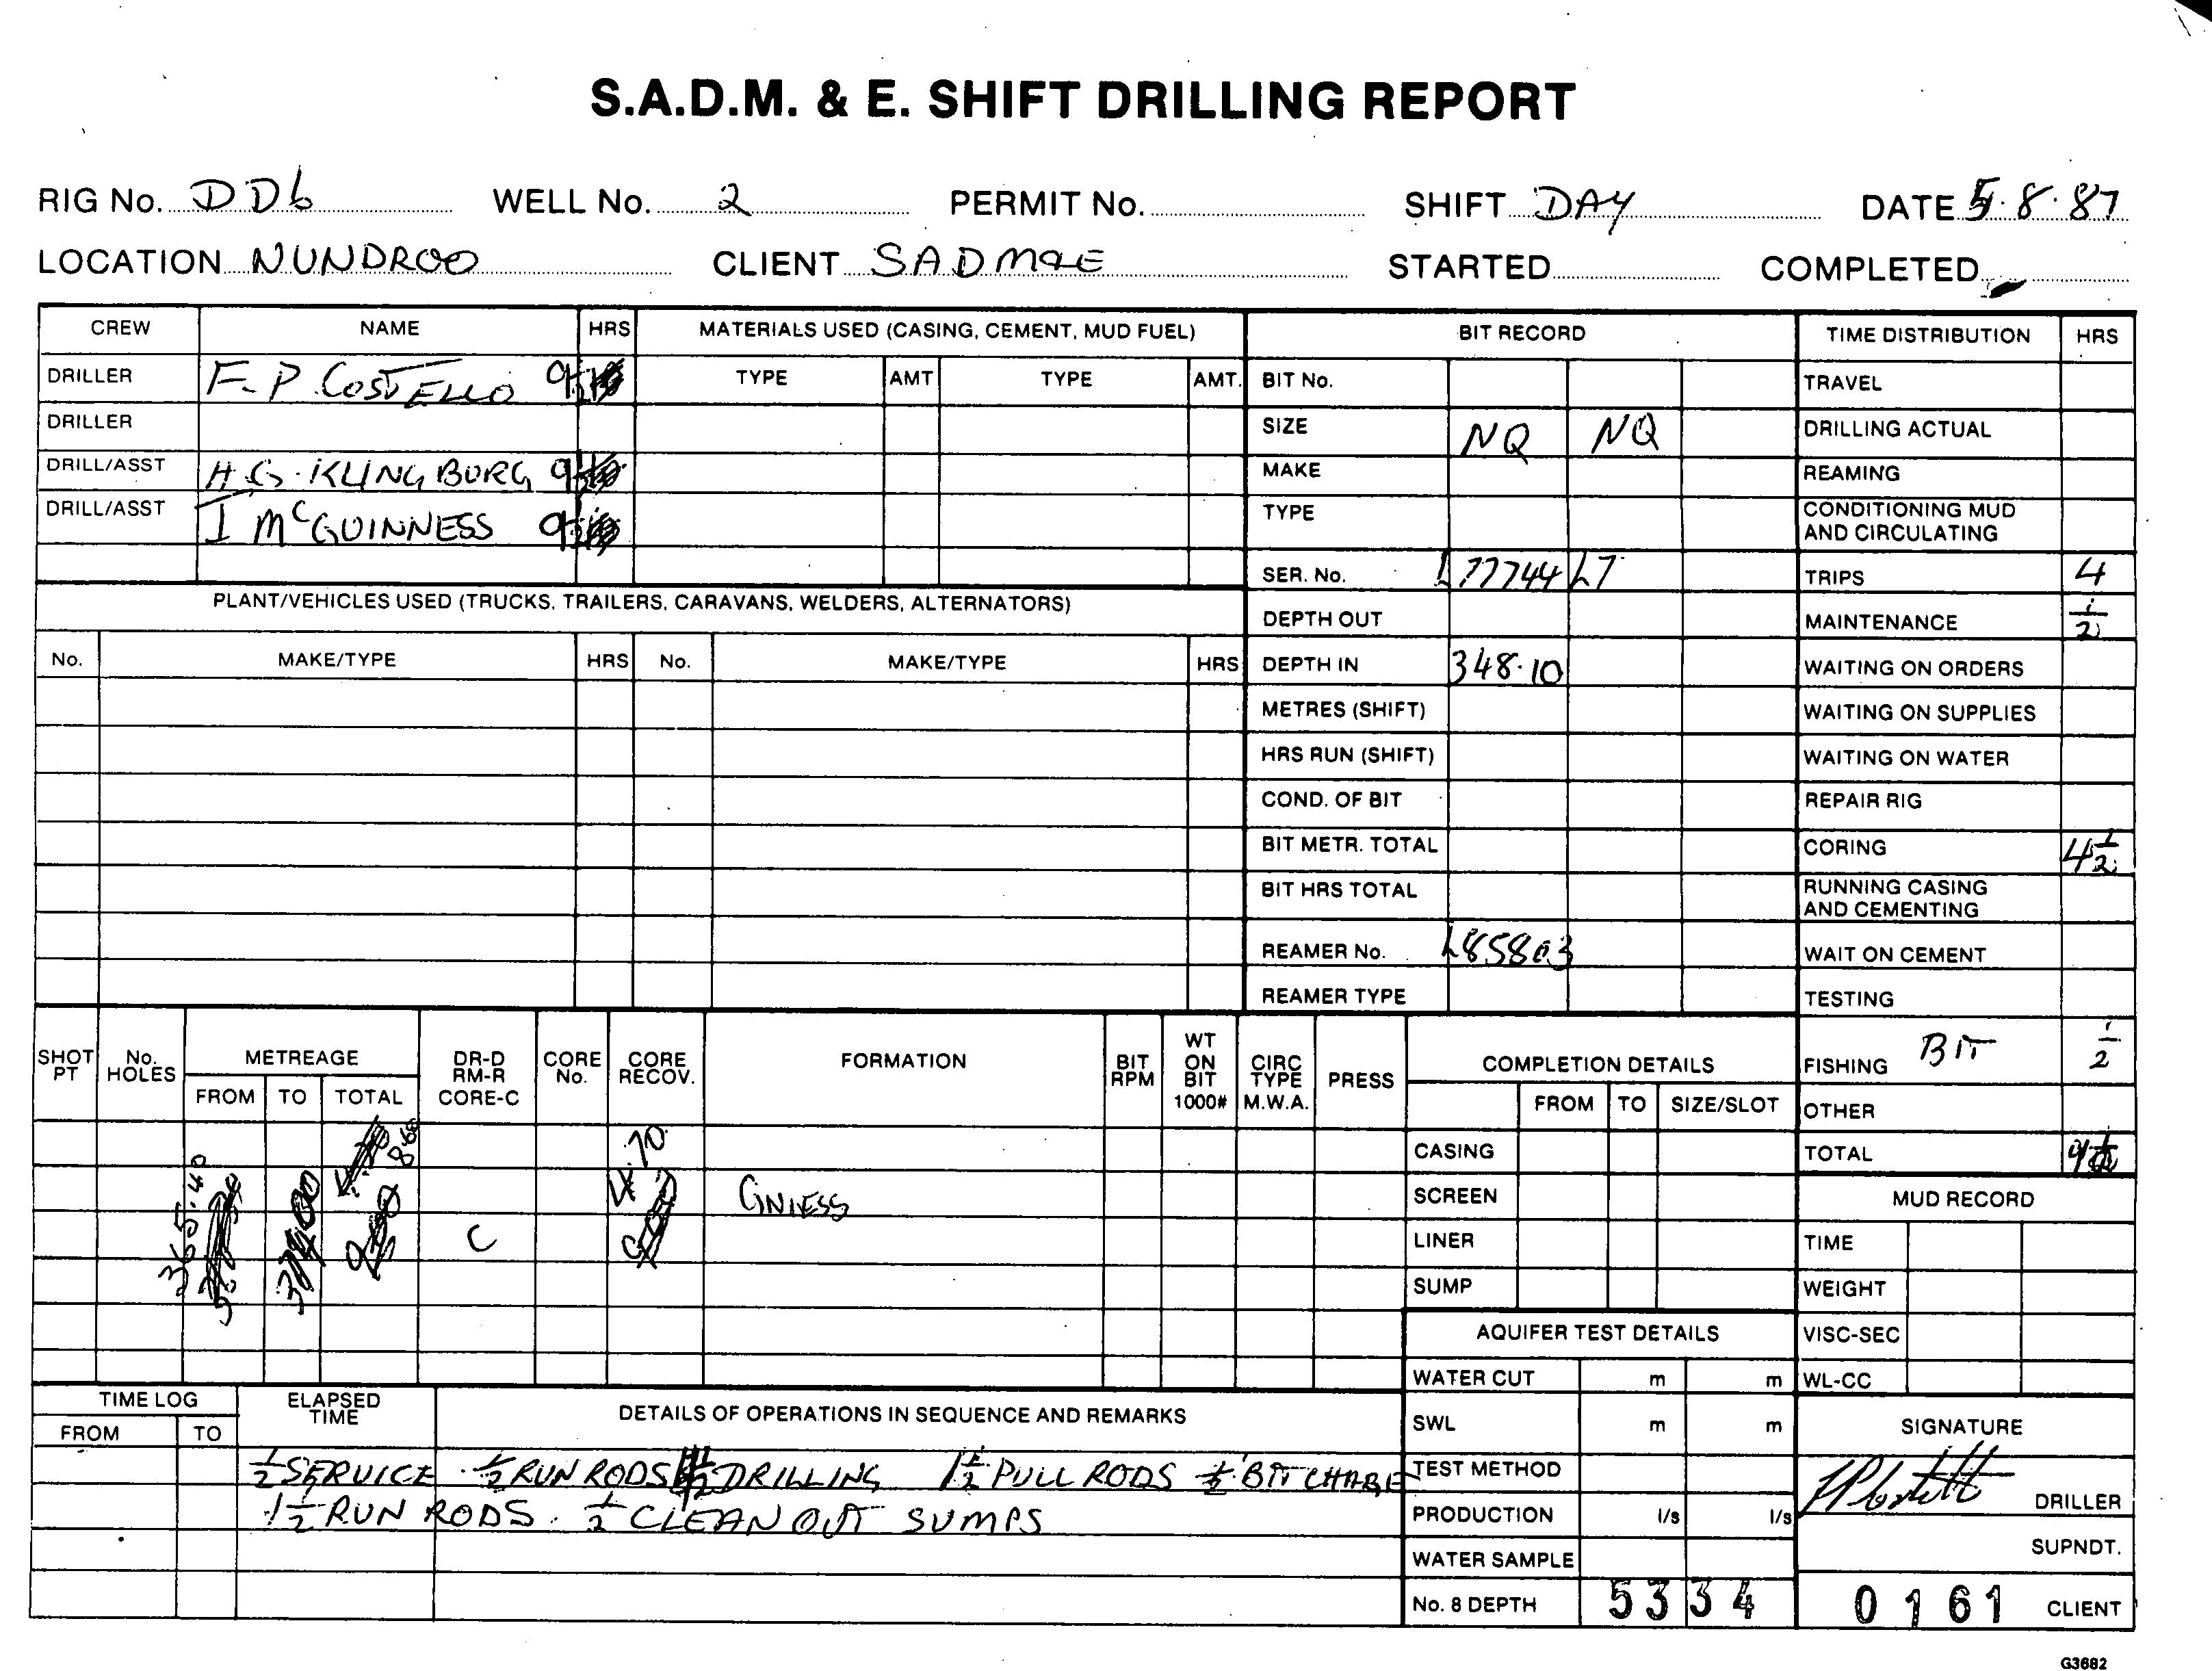 S.A.D.M. & E. SHIFT DRILLING REPORT
RIG No. DD6 WELL No. 2 PERMIT No. SHIFT DAY DATE 5.8.87
LOCATION NUNDROO CLIENT SADM&E STARTED COMPLETED
CREW NAME HRS MATERIALS USED (CASING, CEMENT, MUD FUEL) BIT RECORD TIME DISTRIBUTION HRS
DRILLER F.P. COSTELLO 9½ TYPE AMT TYPE AMT. BIT No. TRAVEL
DRILLER SIZE NQ NQ DRILLING ACTUAL
DRILL/ASST H.G. KLINGBURG 9½ MAKE REAMING
DRILL/ASST I McGUINNESS 9½ TYPE CONDITIONING MUD AND CIRCULATING
SER. No. L77744 L7 TRIPS 4
PLANT/VEHICLES USED (TRUCKS, TRAILERS, CARAVANS, WELDERS, ALTERNATORS) DEPTH OUT MAINTENANCE ½
No. MAKE/TYPE HRS No. MAKE/TYPE HRS DEPTH IN 348.10 WAITING ON ORDERS
METRES (SHIFT) WAITING ON SUPPLIES
HRS RUN (SHIFT) WAITING ON WATER
COND. OF BIT REPAIR RIG
BIT METR. TOTAL CORING 4½
BIT HRS TOTAL RUNNING CASING AND CEMENTING
REAMER No. L85803 WAIT ON CEMENT
REAMER TYPE TESTING
SHOT PT No. HOLES METREAGE DR-D RM-R CORE-C CORE No. CORE RECOV. FORMATION BIT RPM WT ON BIT 1000# CIRC TYPE M.W.A. PRESS COMPLETION DETAILS FISHING BIT ½
FROM TO TOTAL FROM TO SIZE/SLOT OTHER
8.60 4.70 CASING TOTAL 9½
365.40 GNIESS SCREEN MUD RECORD
C LINER TIME
SUMP WEIGHT
AQUIFER TEST DETAILS VISC-SEC
WATER CUT m m WL-CC
TIME LOG ELAPSED TIME DETAILS OF OPERATIONS IN SEQUENCE AND REMARKS SWL m m SIGNATURE
FROM TO
½ SERVICE . ½ RUN RODS DRILLING 1½ PULL RODS ½ BIT CHANGE TEST METHOD DRILLER
1½ RUN RODS . ½ CLEAN OUT SUMPS PRODUCTION l/s l/s
WATER SAMPLE SUPNDT.
No. 8 DEPTH 5334 0161 CLIENT
G3682